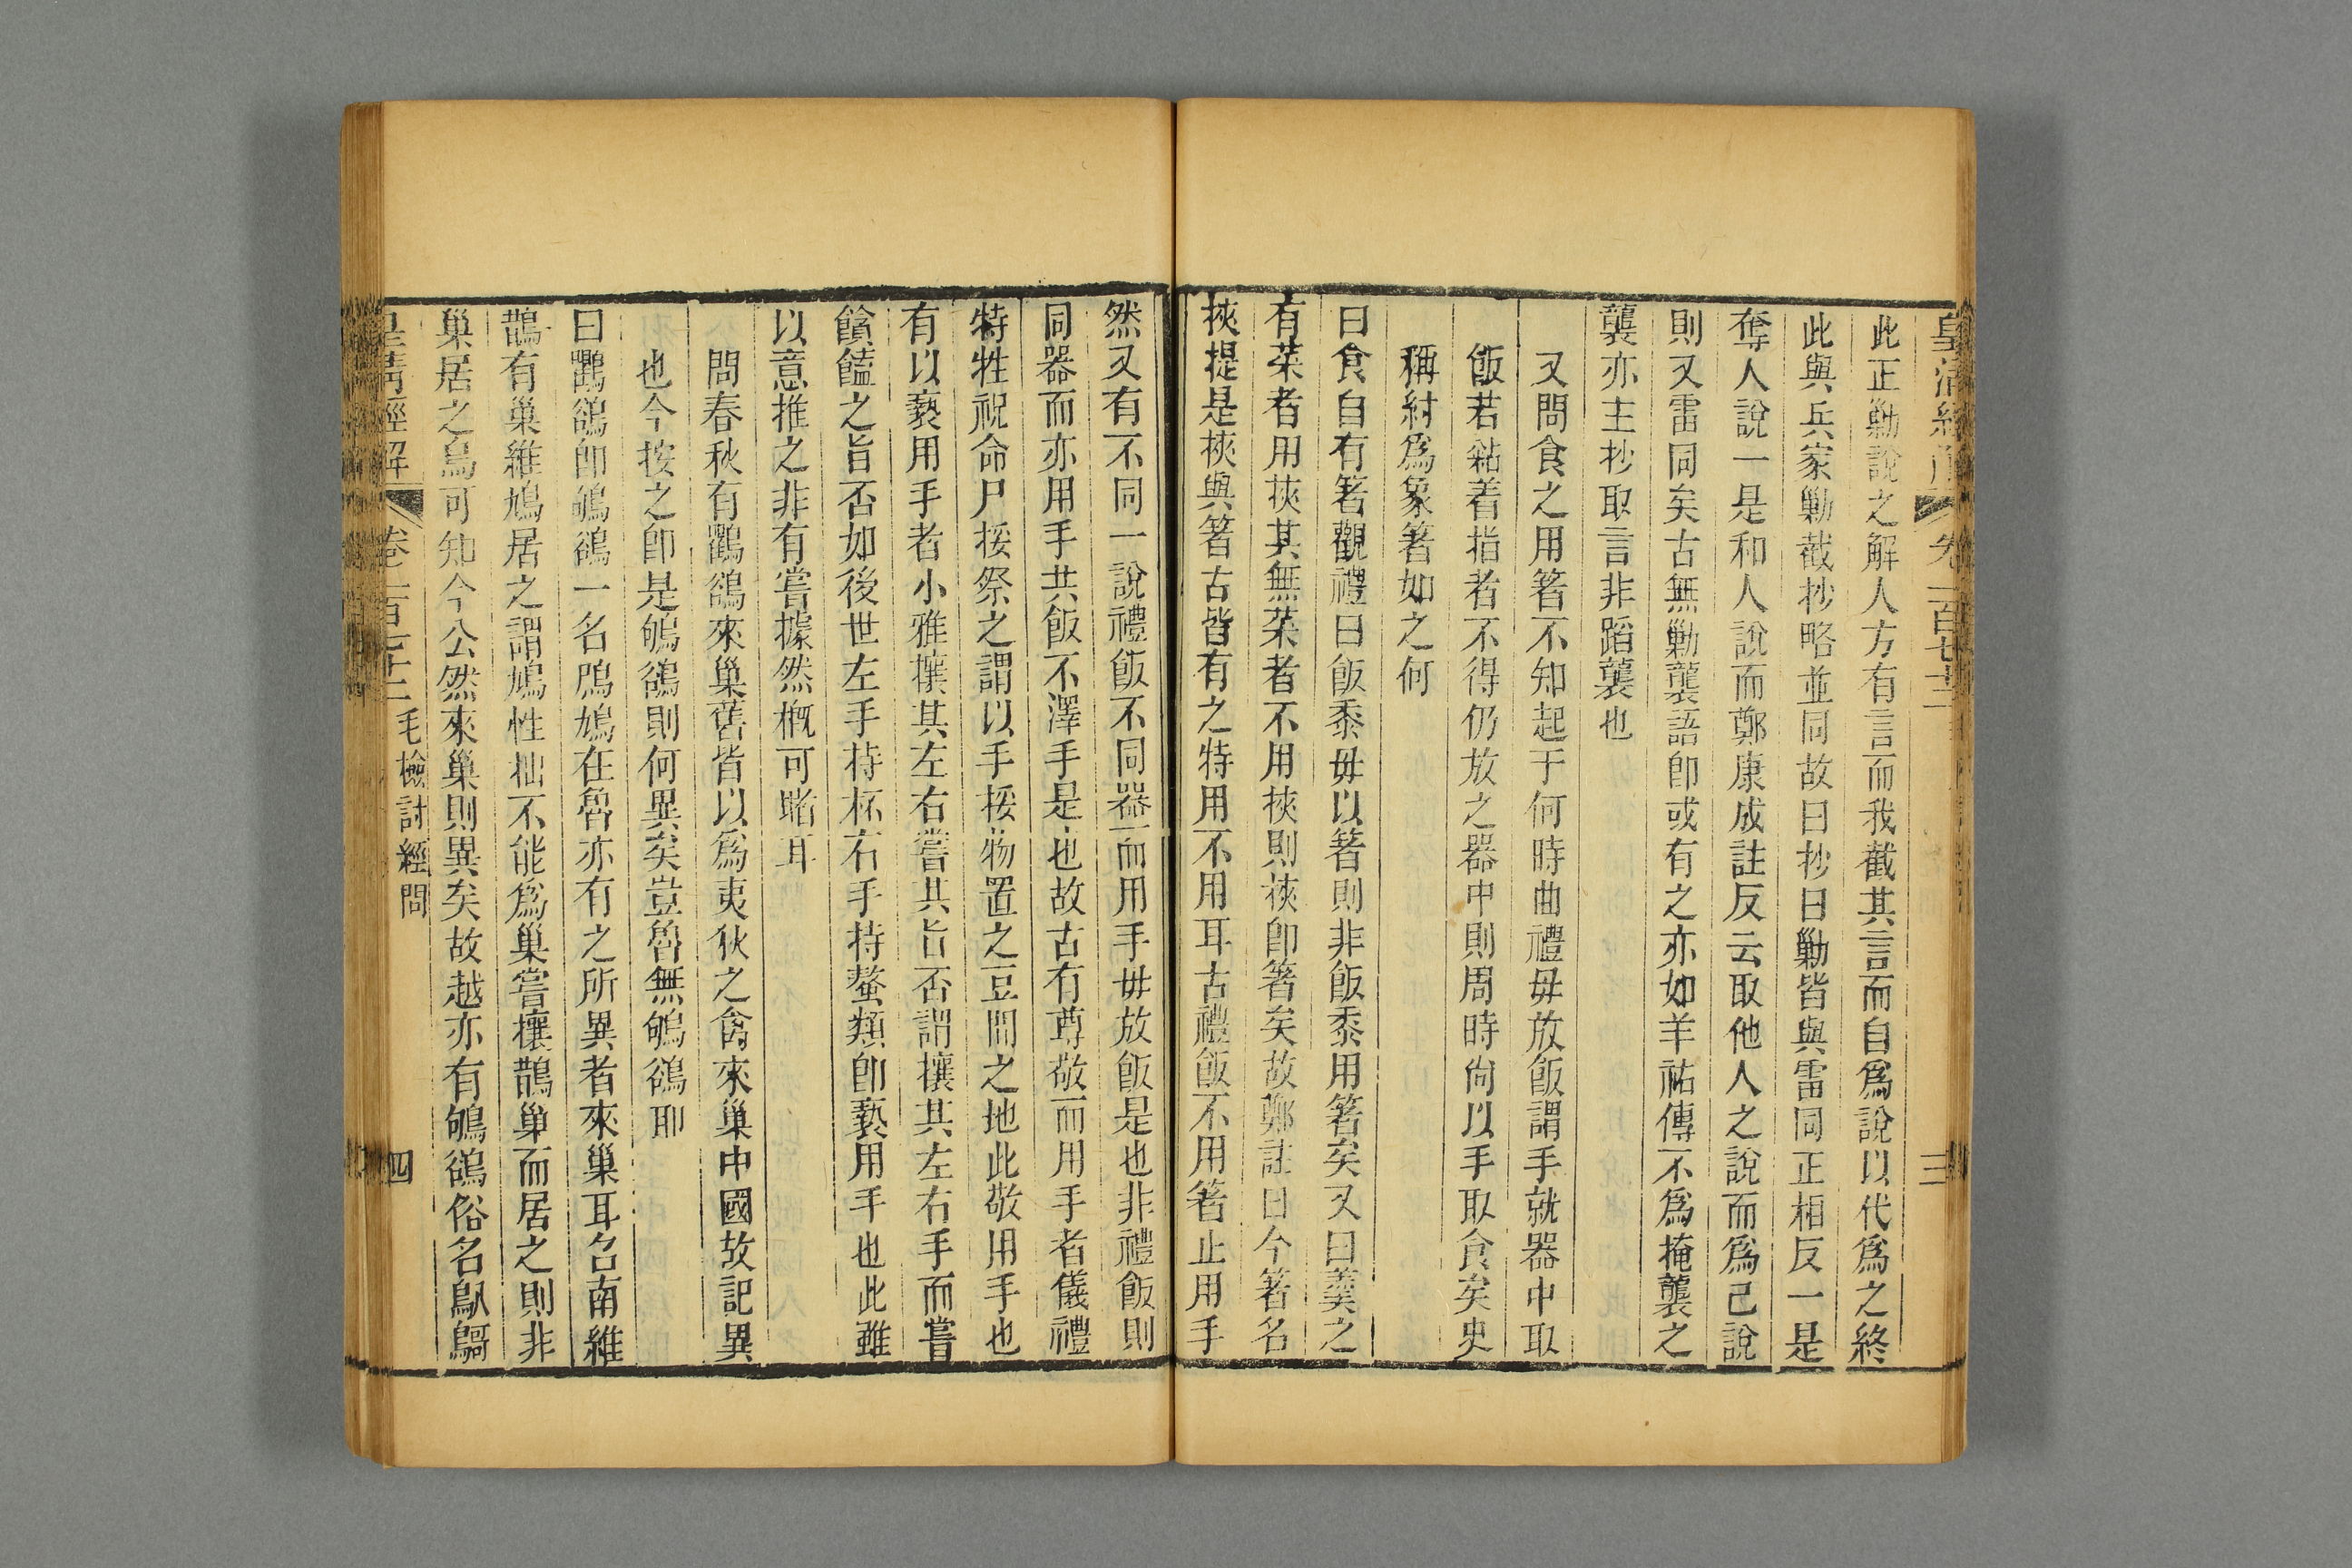 皇清經解 卷一百七十二 三
此正勦說之解人方有言而我截其言而自爲說以代爲之終
此與兵家勦截抄略並同故曰抄曰勦皆與雷同正相反一是
奪人說一是和人說而鄭康成註反云取他人之說而爲己說
則又雷同矣古無勦襲語即或有之亦如羊祜傳不爲掩襲之
襲亦主抄取言非蹈襲也
又問食之用箸不知起于何時曲禮毋放飯謂手就器中取
飯若黏着指者不得仍放之器中則周時尙以手取食矣史
稱紂爲象箸如之何
曰食自有箸觀禮曰飯黍毋以箸則非飯黍用箸矣又曰羹之
有菜者用挾其無菜者不用挾則挾即箸矣故鄭註曰今箸名
挾提是挾與箸古皆有之特用不用耳古禮飯不用箸止用手
然又有不同一說禮飯不同器而用手毋放飯是也非禮飯則
同器而亦用手共飯不澤手是也故古有尊敬而用手者儀禮
特牲祝命尸挼祭之謂以手挼物置之豆間之地此敬用手也
有以褻用手者小雅攘其左右嘗其旨否謂攘其左右手而嘗
饋饁之旨否如後世左手持杯右手持螯類即褻用手也此雖
以意推之非有嘗據然槪可睹耳
問春秋有鸜鵒來巢舊皆以爲夷狄之禽來巢中國故記異
也今按之即是鴝鵒則何異矣豈魯無鴝鵒耶
曰鸜鵒即鴝鵒一名鳲鳩在魯亦有之所異者來巢耳召南維
鵲有巢維鳩居之謂鳩性拙不能爲巢嘗攘鵲巢而居之則非
巢居之鳥可知今公然來巢則異矣故越亦有鴝鵒俗名
皇淸經解 卷一百七十二 毛檢討經問 四